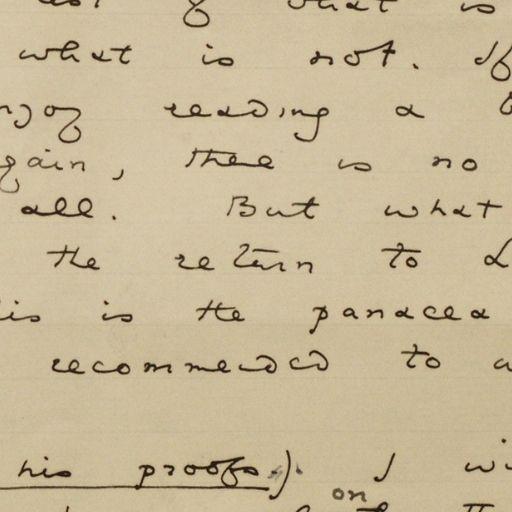 what is
what is not. If
reading a
gain, there is no
all. But what
the return to
is is the panacea
recommended to
his proofs). I
on